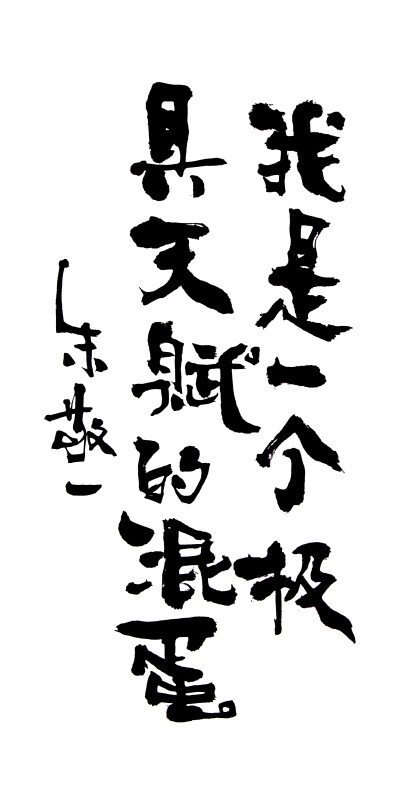 我是一个极
具天赋的混蛋
朱敬一